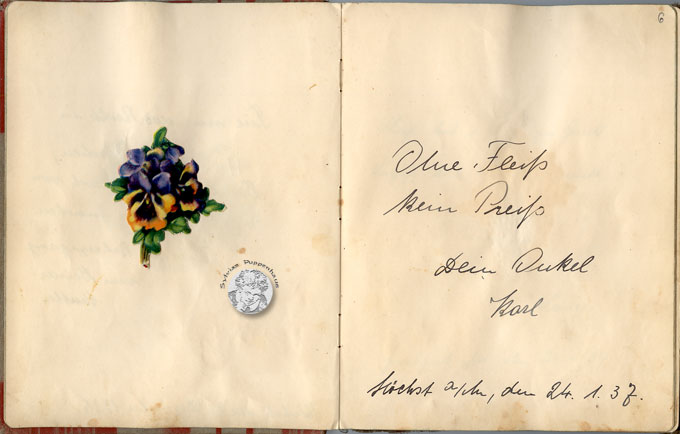 Sylvias Puppenhaus
6
Ohne Fleiß
kein Preiß
Dein Onkel
Karl
Höchst a/M, den 24. 1. 37.